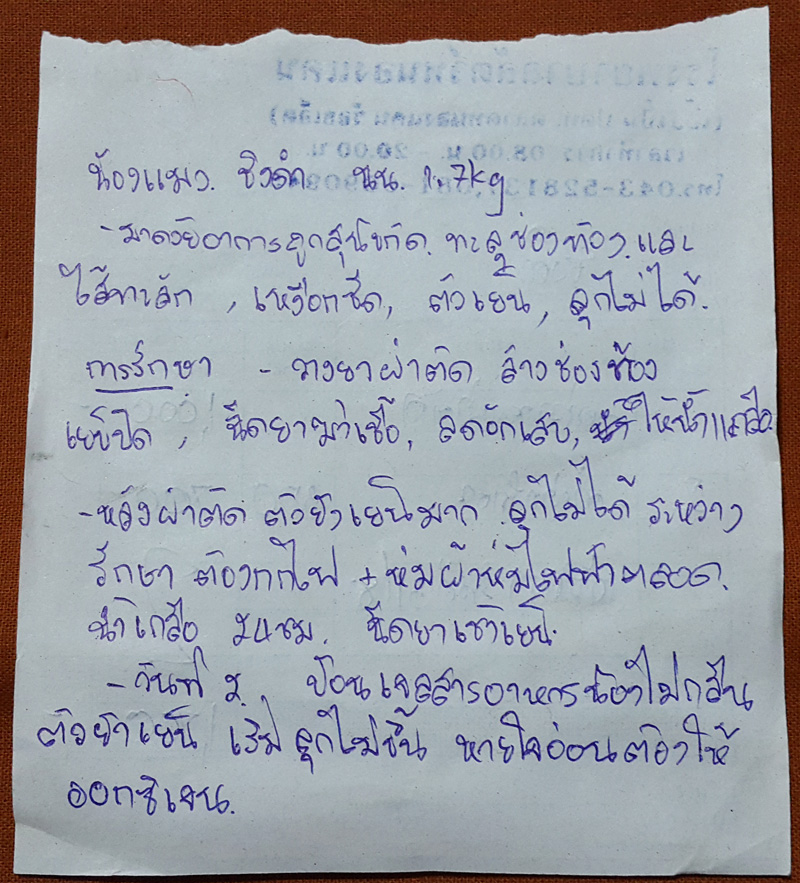 น้องแมง. ชิงดำ นน. 1.7kg
- มาด้วยอาการถูกสุนัขกัด. ทะลุช่องท้อง. และ
ไส้ทะลัก , เหงือกซีด, ตัวเย็น, ลุกไม่ได้.
การรักษา - วางยาผ่าตัด ล้างช่องท้อง
เย็บปิด , ฉีดยาฆ่าเชื้อ, ลดอักเสบ, ให้น้ำเกลือ
- หลังผ่าตัด ตัวยังเย็นมาก ลุกไม่ได้ ระหว่าง
รักษา ต้องกกไฟ + ห่มผ้าห่มไฟฟ้าตลอด.
น้ำเกลือ 24 ชม. ฉีดยาเช้าเย็น.
- วันที่ 2. ป้อนเจลสารอาหารน้องไม่กลืน
ตัวยังเย็น เริ่มลุกไม่ขึ้น หายใจอ่อนต้องให้
ออกซิเจน.